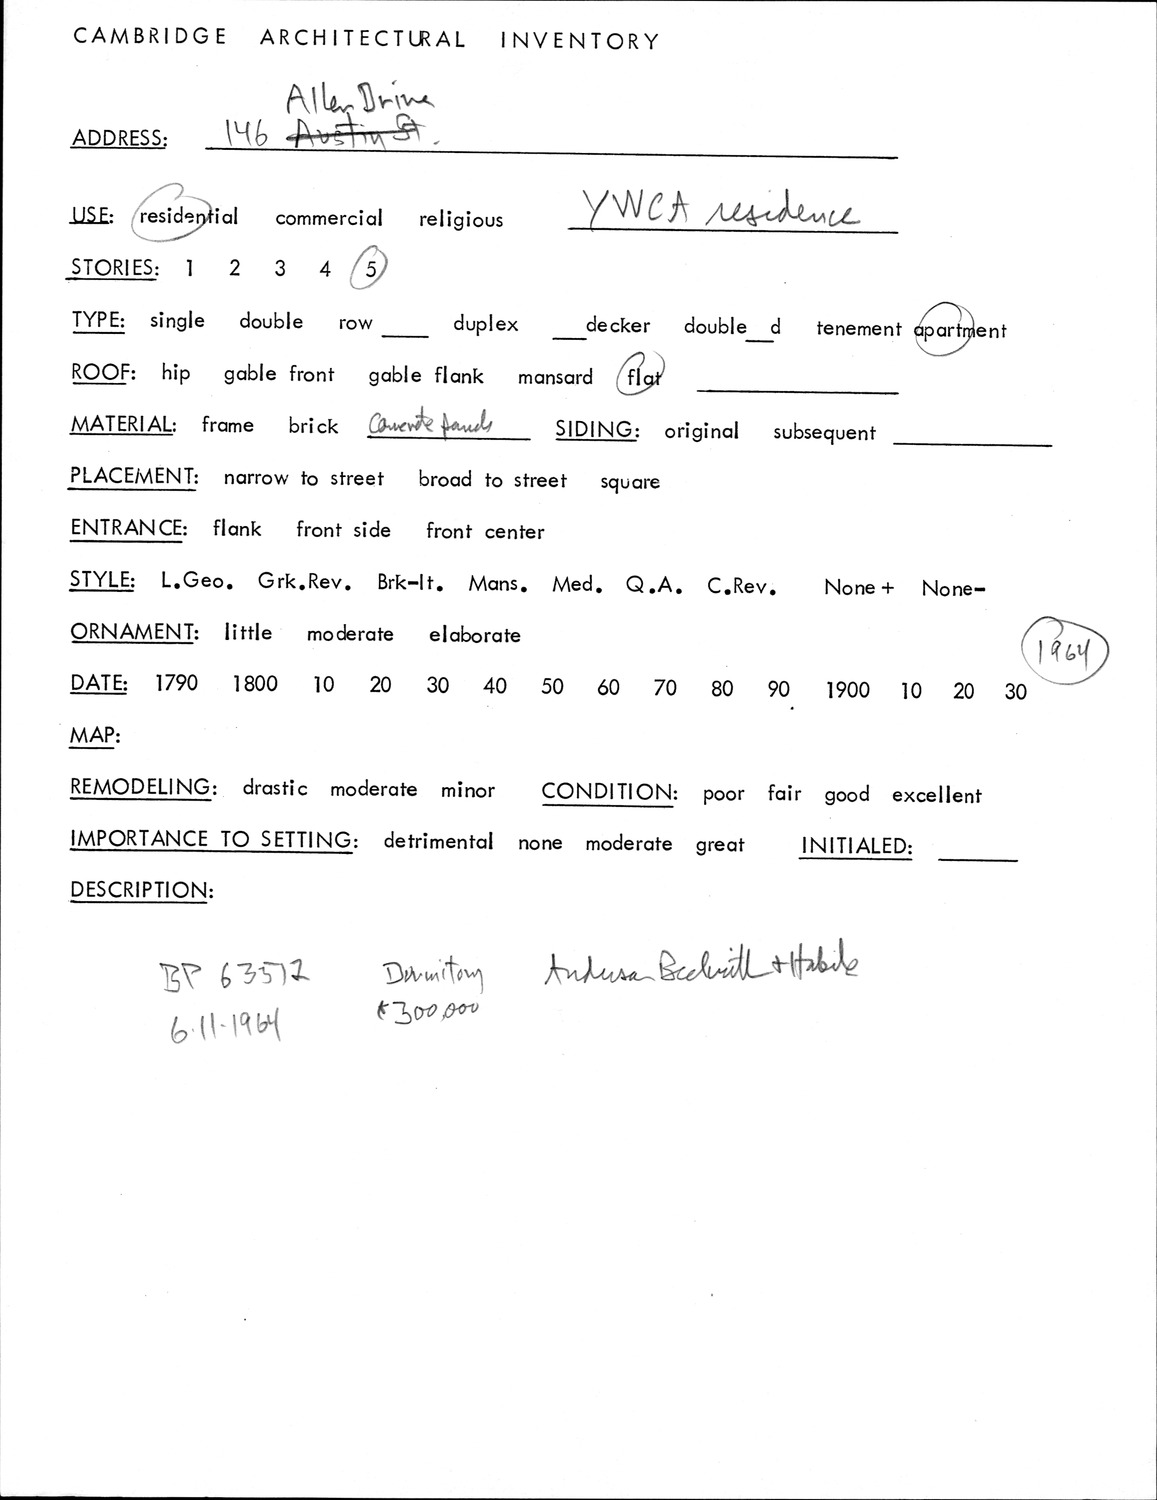 CAMBRIDGE ARCHITECTURAL INVENTORY
Allen Drive
ADDRESS: 146 Austin St.
USE: residential commercial religious YWCA residence
STORIES: 1 2 3 4 5
TYPE: single double row ____ duplex ___decker double__d tenement apartment
ROOF: hip gable front gable flank mansard flat ____
MATERIAL: frame brick Concrete panels SIDING: original subsequent ____
PLACEMENT: narrow to street broad to street square
ENTRANCE: flank front side front center
STYLE: L.Geo. Grk.Rev. Brk-It. Mans. Med. Q.A. C.Rev. None+ None-
ORNAMENT: little moderate elaborate
1964
DATE: 1790 1800 10 20 30 40 50 60 70 80 90 1900 10 20 30
MAP:
REMODELING: drastic moderate minor CONDITION: poor fair good excellent
IMPORTANCE TO SETTING: detrimental none moderate great INITIALED: ____
DESCRIPTION:
BP 63572 Dormitory Anderson Beckwith + Haible
6.11.1964 $300,000